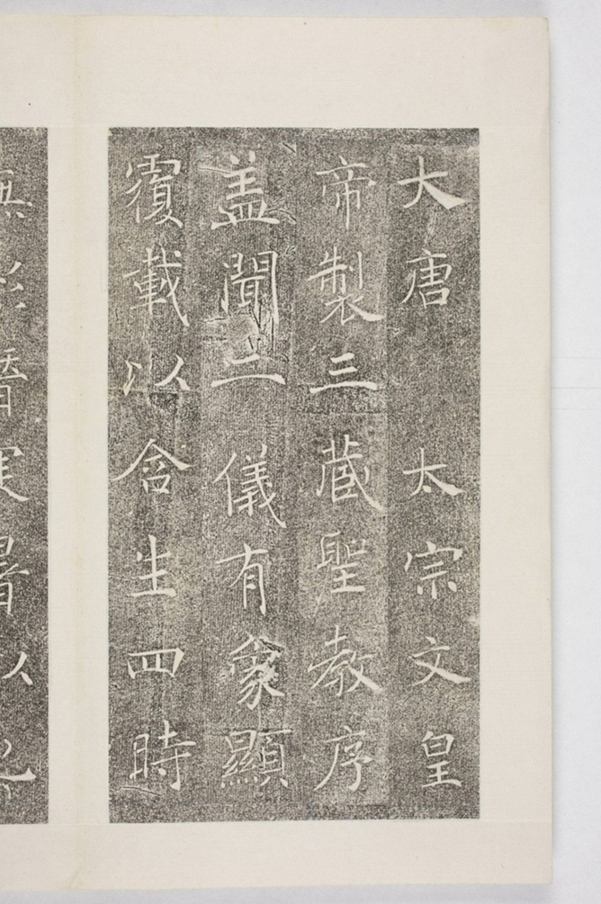 大唐太宗文皇
帝製三藏聖教序
盖聞二儀有象顯
覆載以含生四時
無形潛寒暑以化